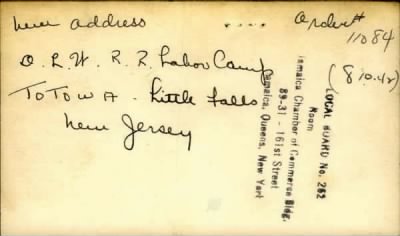 new address
Order#
11084
(8 10.42)
D. L. W. R. R. Labor Camp
TOTOWA. Little Falls
New Jersey
LOCAL BOARD No. 262
Room
Jamaica Chamber of Commerce Bldg.
89-31 - 161st Street
Jamaica, Queens, New York